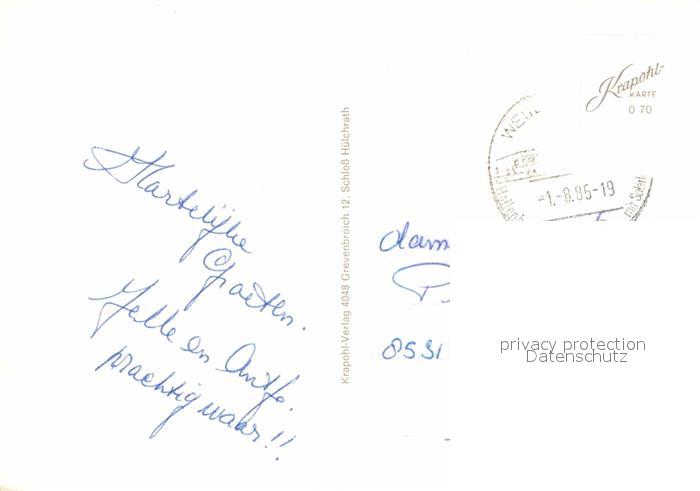 Hartelijke
Groeten.
Jelle en Antje.
prachtig waar!!
Krapohl-Verlag 4048 Grevenbroich 12, Schloß Hülchrath
Krapohl-
KARTE
0 70
WEM
-1.-8.85-19
dam
8531
privacy protection
Datenschutz